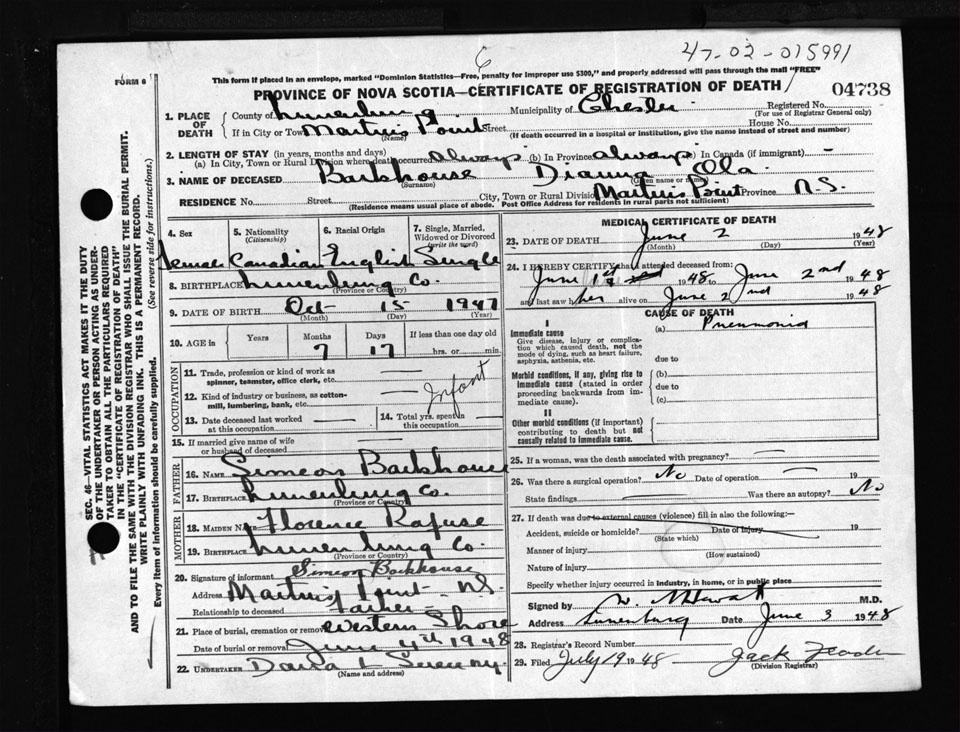 6
47-02-015991
FORM 6
This form if placed in an envelope, marked "Dominion Statistics—Free, penalty for improper use $300," and properly addressed will pass through the mail "FREE"
PROVINCE OF NOVA SCOTIA—CERTIFICATE OF REGISTRATION OF DEATH
04738
1. PLACE OF DEATH
County of Lunenburg Municipality of Chester Registered No.
(For use of Registrar General only)
If in City or Town Martin's Point Street House No.
(Name) (If death occurred in a hospital or institution, give the name instead of street and number)
2. LENGTH OF STAY (in years, months and days)
(a) In City, Town or Rural Division where death occurred always (b) In Province always In Canada (if immigrant) -
3. NAME OF DECEASED Barkhouse Dianna Ola
(Surname) (Given name or names)
RESIDENCE No. Street City, Town or Rural Division Martin's Point Province N.S.
(Residence means usual place of abode. Post Office Address for residents in rural parts not sufficient)
4. Sex 5. Nationality (Citizenship) 6. Racial Origin 7. Single, Married, Widowed or Divorced (write the word)
Female Canadian English Single
8. BIRTHPLACE Lunenburg Co.
(Province or Country)
9. DATE OF BIRTH Oct 15 1947
(Month) (Day) (Year)
10. AGE in Years Months Days If less than one day old
7 17 hrs. or min.
OCCUPATION
11. Trade, profession or kind of work as spinner, teamster, office clerk, etc.
12. Kind of industry or business, as cotton-mill, lumbering, bank, etc.
Infant
13. Date deceased last worked at this occupation
14. Total yrs. spent in this occupation
15. If married give name of wife or husband of deceased
FATHER
16. NAME Simeon Barkhouse
17. BIRTHPLACE Lunenburg Co.
(Province or Country)
MOTHER
18. MAIDEN NAME Florence Rafuse
19. BIRTHPLACE Lunenburg Co.
(Province or Country)
20. Signature of informant Simeon Barkhouse
Address Martin's Point N.S.
Relationship to deceased Father
21. Place of burial, cremation or removal Western Shore
Date of burial or removal June 4th 1948
22. UNDERTAKER
(Name and address)
MEDICAL CERTIFICATE OF DEATH
23. DATE OF DEATH June 2 1948
(Month) (Day) (Year)
24. I HEREBY CERTIFY that I attended deceased from:
June 1st 1948 to June 2nd 1948
and last saw her alive on June 2nd 1948
CAUSE OF DEATH
I
Immediate cause
Give disease, injury or complication which caused death, not the mode of dying, such as heart failure, asphyxia, asthenia, etc.
(a) Pneumonia
due to
Morbid conditions, if any, giving rise to immediate cause (stated in order proceeding backwards from immediate cause).
(b)
due to
(c)
II
Other morbid conditions (if important) contributing to death but not causally related to immediate cause.
25. If a woman, was the death associated with pregnancy?
26. Was there a surgical operation? No Date of operation 19
State findings Was there an autopsy? No
27. If death was due to external causes (violence) fill in also the following:
Accident, suicide or homicide? Date of injury 19
(State which)
Manner of injury
(How sustained)
Nature of injury
Specify whether injury occurred in industry, in home, or in public place
Signed by M.D.
Address Lunenburg Date June 3 1948
28. Registrar's Record Number
29. Filed July 19 1948 Jack
(Division Registrar)
SEC. 46—VITAL STATISTICS ACT MAKES IT THE DUTY
OF THE UNDERTAKER OR PERSON ACTING AS UNDER-
TAKER TO OBTAIN ALL THE PARTICULARS REQUIRED
IN THE "CERTIFICATE OF REGISTRATION OF DEATH"
AND TO FILE THE SAME WITH THE DIVISION REGISTRAR WHO SHALL ISSUE THE BURIAL PERMIT.
WRITE PLAINLY WITH UNFADING INK. THIS IS A PERMANENT RECORD.
Every item of Information should be carefully supplied. (See reverse side for instructions.)